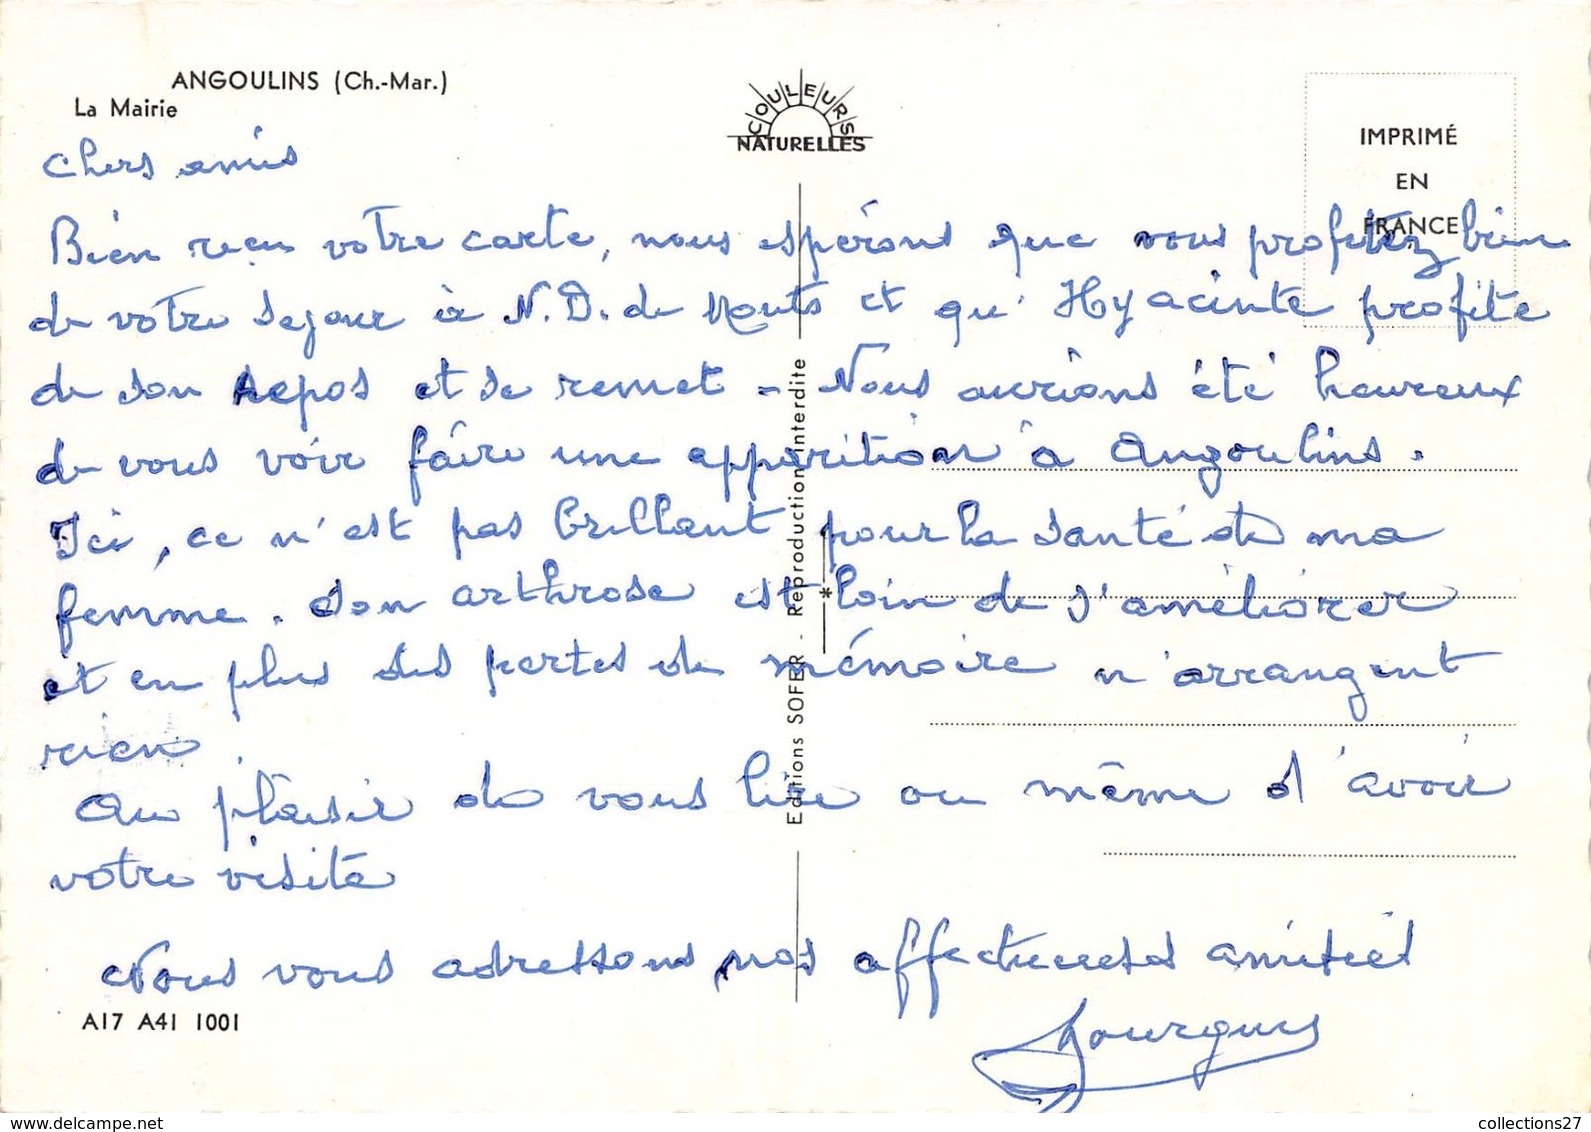 ANGOULINS (Ch.-Mar.)
La Mairie
COULEURS
NATURELLES
IMPRIMÉ
EN
FRANCE
Chers amis
Bien reçu votre carte, nous espérons que vous profitez bien
de votre sejour à N.D. de Monts et qu'Hyacinte profite
de son repos et se remet - Nous aurions été heureux
de vous voir faire une apparition à Angoulins.
Ici, ce n'est pas brillant pour la santé de ma
femme. Son arthrose est loin de s'améliorer
et en plus des pertes de mémoire n'arrangent
rien.
Au plaisir de vous lire ou même d'avoir
votre visite
Nous vous adressons nos affectueuses amitiés
Editions SOFER - Reproduction interdite
*
A17 A41 1001
collections27